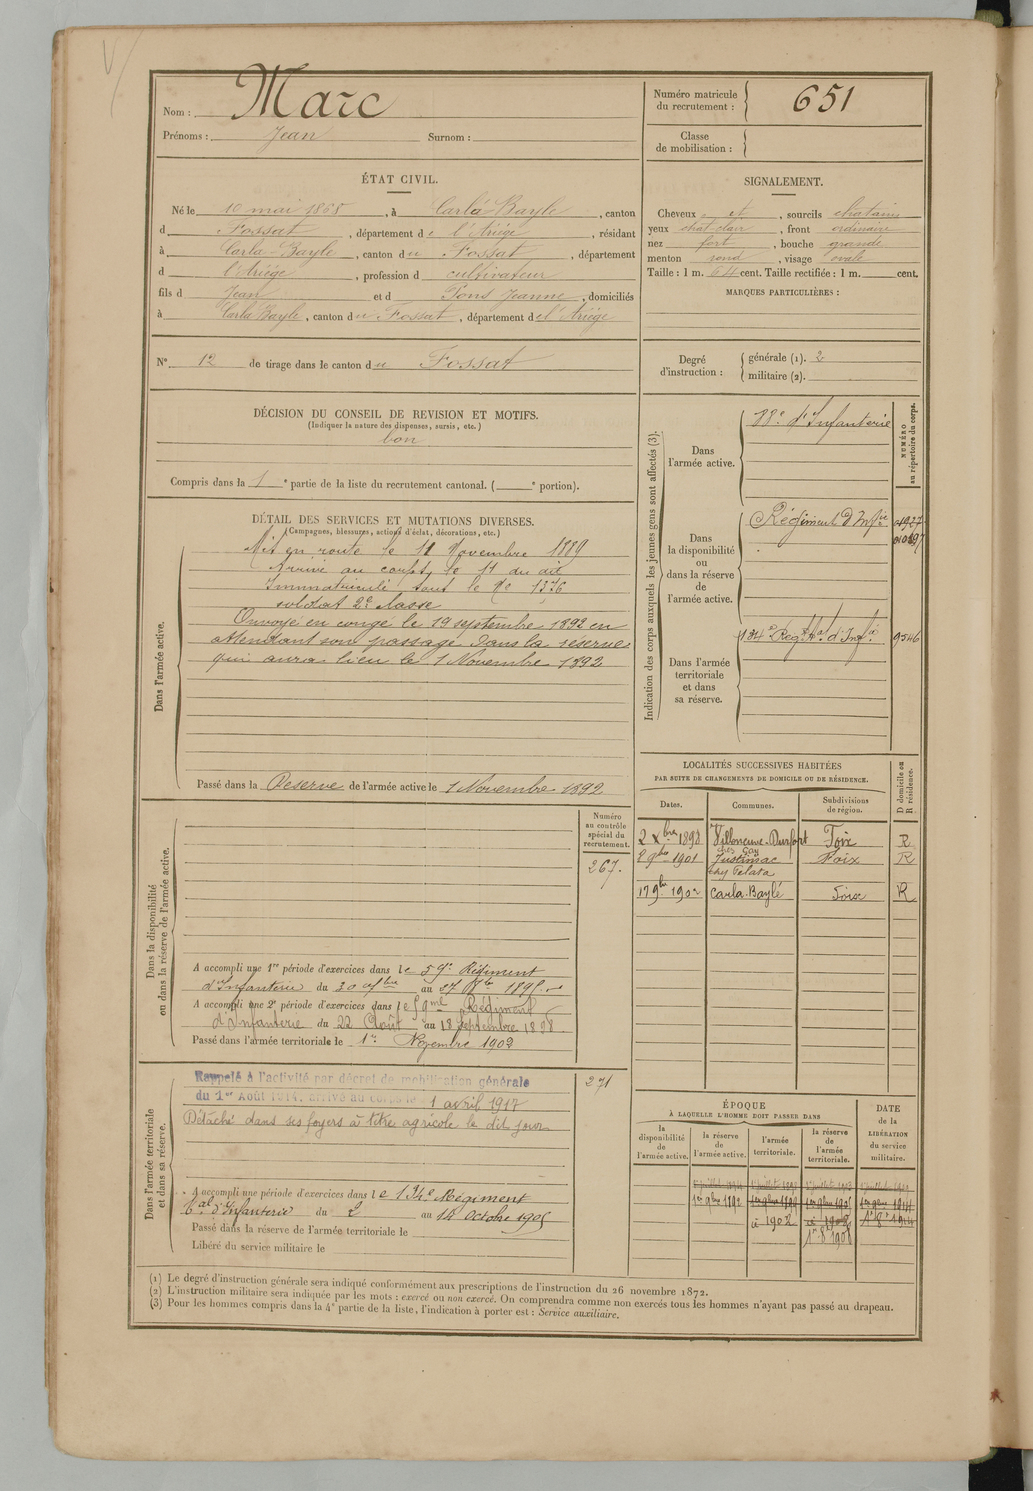 Nom : Marc
Prénoms : Jean Surnom :
Numéro matricule du recrutement : 651
Classe de mobilisation :
ÉTAT CIVIL.
Né le 10 mai 1868, à Carla Bayle, canton
d Fossat, département de l'Ariège, résidant
à Carla-Bayle, canton du Fossat, département
d l'Ariège, profession d cultivateur
fils d Jean et d Pons Jeanne, domiciliés
à Carla Bayle, canton du Fossat, département de l'Ariège
N° 12 de tirage dans le canton du Fossat
SIGNALEMENT.
Cheveux et, sourcils chatains
yeux chat clair, front ordinaire
nez fort, bouche grande
menton rond, visage ovale
Taille : 1 m. 64 cent. Taille rectifiée : 1 m. cent.
MARQUES PARTICULIÈRES :
Degré d'instruction : générale (1). 2
militaire (2).
DÉCISION DU CONSEIL DE REVISION ET MOTIFS.
(Indiquer la nature des dispenses, sursis, etc.)
bon
Compris dans la 1e partie de la liste du recrutement cantonal. ( e portion).
DÉTAIL DES SERVICES ET MUTATIONS DIVERSES.
(Campagnes, blessures, actions d'éclat, décorations, etc.)
Dans l'armée active.
Mis en route le 11 Novembre 1889
Arrivé au corps le 11 du dit
Immatriculé sous le No 1376
soldat 2e classe
Envoyé en congé le 19 septembre 1892 en
attendant son passage dans la réserve
qui aura lieu le 1 Novembre 1892
Passé dans la Réserve de l'armée active le 1 Novembre 1892
Indication des corps auxquels les jeunes gens sont affectés (3).
NUMÉRO au répertoire du corps.
Dans l'armée active.
88e d'Infanterie
Dans la disponibilité ou dans la réserve de l'armée active.
Régiment d'Infie
Dans l'armée territoriale et dans sa réserve.
134e Régt tal d'Infie 9546
LOCALITÉS SUCCESSIVES HABITÉES
PAR SUITE DE CHANGEMENTS DE DOMICILE OU DE RÉSIDENCE.
Dates. Communes. Subdivisions de région. D domicile ou R résidence.
2 Xbre 1898 Villeneuve-Durfort Foix R
1901 Justiniac Foix R
17 9bre 1902 Carla-Bayle Foix R
Dans la disponibilité ou dans la réserve de l'armée active.
Numéro au contrôle spécial du recrutement.
267.
A accompli une 1re période d'exercices dans le 59e Régiment
d'Infanterie du 30 au 1895
A accompli une 2e période d'exercices dans le 59me Régiment
d'Infanterie du 22 Août au 18 Septembre 1898
Passé dans l'armée territoriale le 1er Novembre 1902
Dans l'armée territoriale et dans sa réserve.
Rappelé à l'activité par décret de mobilisation générale 271
du 1er Août 1914, arrivé au corps le 1 avril 1917
Détaché dans ses foyers à titre agricole le dit jour
A accompli une période d'exercices dans le 134e Régiment
tal d'Infanterie du 2 au 14 Octobre 1905
Passé dans la réserve de l'armée territoriale le
Libéré du service militaire le
ÉPOQUE
À LAQUELLE L'HOMME DOIT PASSER DANS
DATE de la LIBÉRATION du service militaire.
la disponibilité de l'armée active. la réserve de l'armée active. l'armée territoriale. la réserve de l'armée territoriale.
1er 9bre 1892
1902
(1) Le degré d'instruction générale sera indiqué conformément aux prescriptions de l'instruction du 26 novembre 1872.
(2) L'instruction militaire sera indiquée par les mots : exercé ou non exercé. On comprendra comme non exercés tous les hommes n'ayant pas passé au drapeau.
(3) Pour les hommes compris dans la 4e partie de la liste, l'indication à porter est : Service auxiliaire.